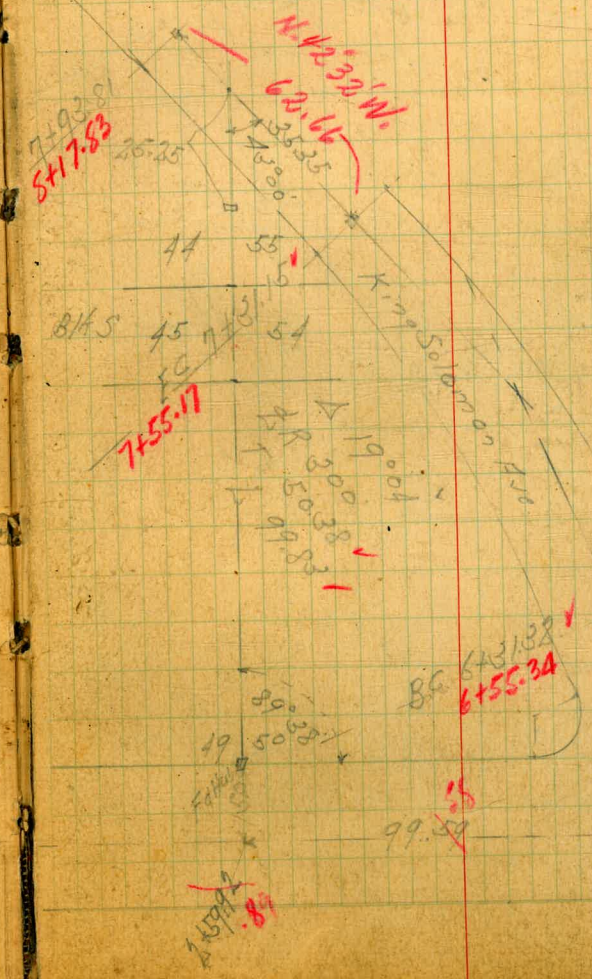 N. 42° 32' W.
62.66
7+93.81
8+17.83
25.25
35.35
45°00'
44 55
15
Blks 45 54
EC 7+31.15
7+55.17
King Solomon Ave
Δ 19°04
R 300
T 50.38
L 99.83
BC 6+31.32
6+55.34
89°38'
49 50
58
99.59
2+59.92
.89